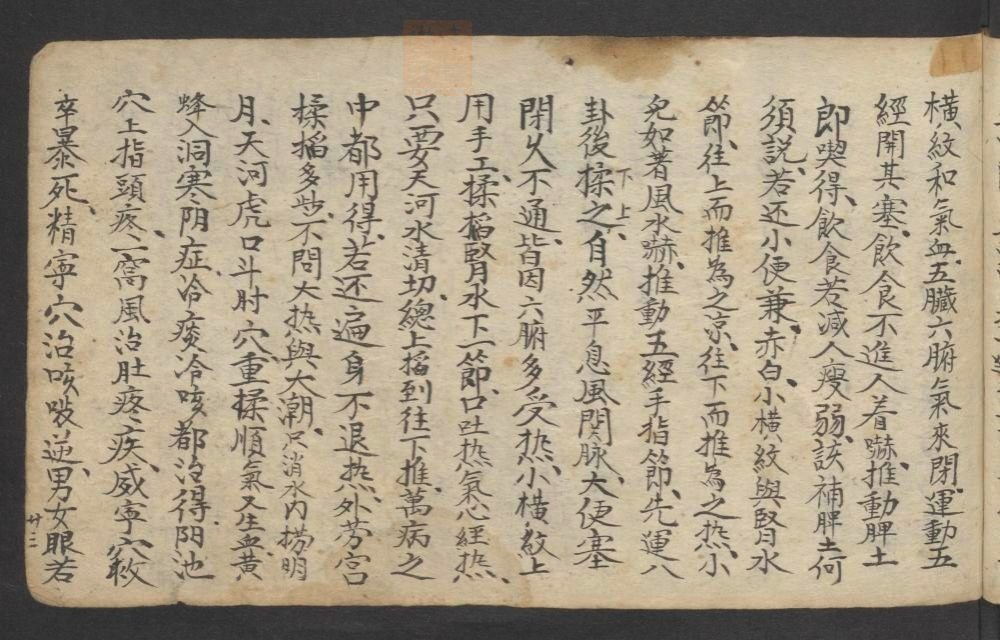 橫紋和氣血、五臟六腑氣來閉、運動五
經開其塞、飲食不進人着嚇、推動脾土
即喫得、飲食若減人瘦弱、該補脾土何
須説、若还小便兼赤白、小橫紋與腎水
節、往上而推為之凉、往下而推為之热、小
兒如著風水嚇、推動五經手指節、先運八
卦後揉之、自然平息風関脉、大便塞
下上、
閉久不通、皆因六腑多受热、小橫紋上
用手工、揉掐腎水下一節、口吐热氣心經热、
只要天河水清切、總上掐到往下推、萬病之
中都用得、若还遍身不退热、外劳宫
揉掐多些、不問大热與大潮、只消水内捞明
月、天河虎口斗肘穴、重揉順氣又生血、黄
蜂入洞寒阴症、冷痰冷咳都治得、阴池
穴上指頭疼、一窩風治肚疼疾、威寧穴救
卒暴死、精寧穴治咳吸逆、男女眼若
廿三